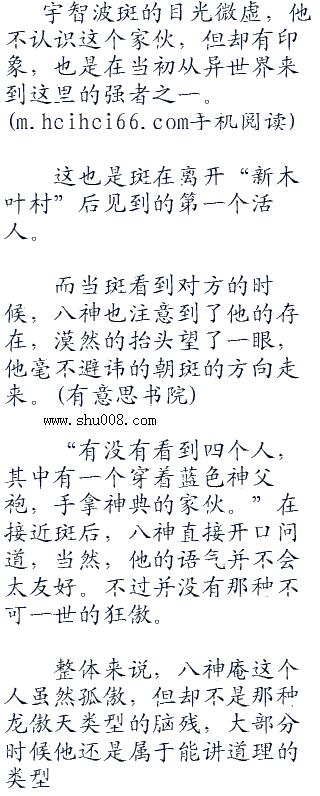 宇智波斑的目光微虚，他
不认识这个家伙，但却有印
象，也是在当初从异世界来
到这里的强者之一。
(m.hcihci66.com手机阅读)
这也是斑在离开“新木
叶村”后见到的第一个活
人。
而当斑看到对方的时
候，八神也注意到了他的存
在，漠然的抬头望了一眼，
他毫不避讳的朝斑的方向走
来。(有意思书院)
www.shu008.com
“有没有看到四个人，
其中有一个穿着蓝色神父
袍，手拿神典的家伙。”在
接近斑后，八神直接开口问
道，当然，他的语气并不会
太友好。不过并没有那种不
可一世的狂傲。
整体来说，八神庵这个
人虽然孤傲，但却不是那种
龙傲天类型的脑残，大部分
时候他还是属于能讲道理的
类型